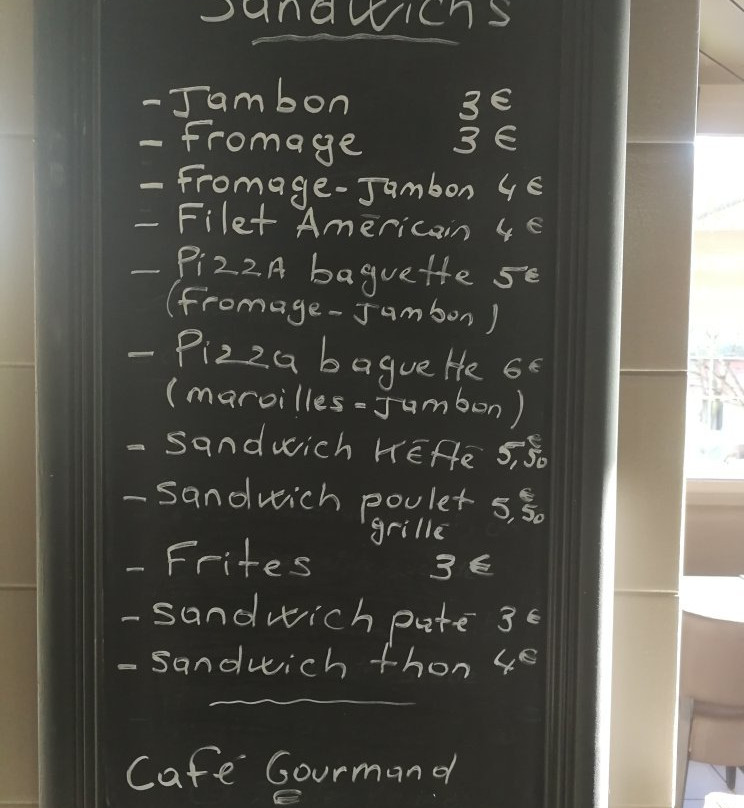 Sandwichs
- Jambon 3 €
- Fromage 3 €
- Fromage-Jambon 4 €
- Filet Américain 4 €
- PizzA baguette 5€
(fromage-Jambon)
- Pizza baguette 6€
(maroilles-Jambon)
- Sandwich KEfté 5,€50
- Sandwich poulet 5,€50
grillé
- Frites 3 €
- Sandwich paté 3 €
- Sandwich thon 4€
Café Gourmand